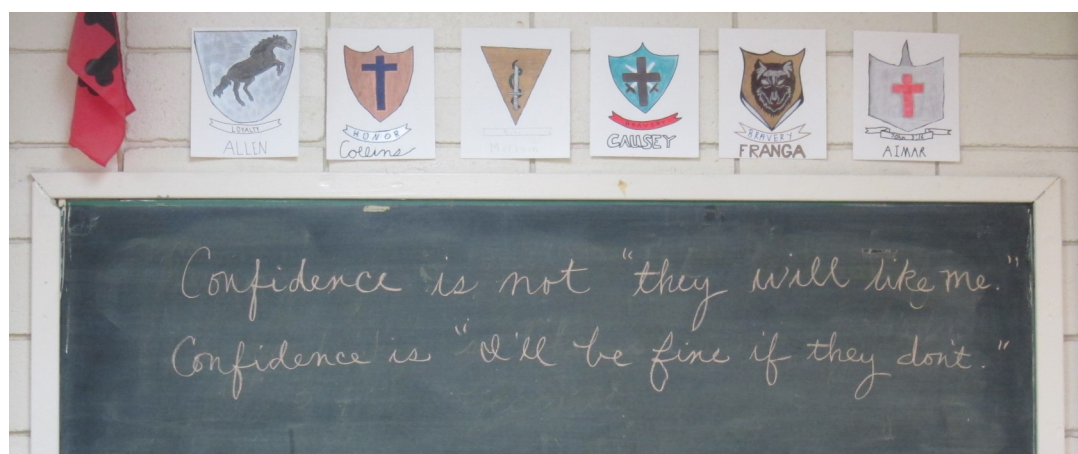 LOYALTY
ALLEN
HONOR
Collins
BRAVERY
CAUSEY
BRAVERY
FRANGA
AIMAR
Confidence is not "they will like me."
Confidence is "I'll be fine if they don't."